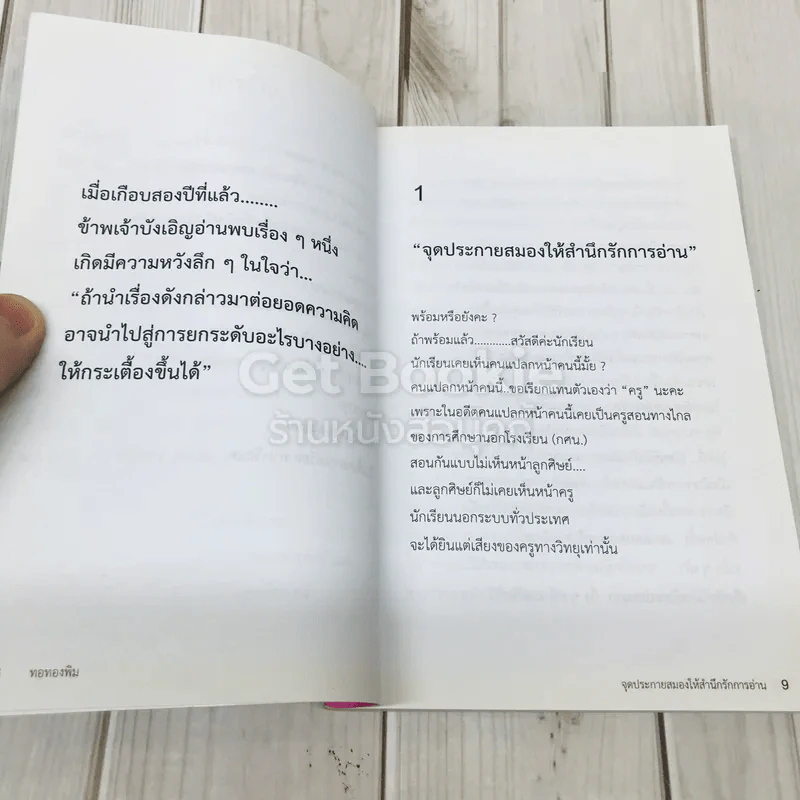 เมื่อเกือบสองปีที่แล้ว........
ข้าพเจ้าบังเอิญอ่านพบเรื่อง ๆ หนึ่ง
เกิดมีความหวังลึก ๆ ในใจว่า...
“ถ้านำเรื่องดังกล่าวมาต่อยอดความคิด
อาจนำไปสู่การยกระดับอะไรบางอย่าง....
ให้กระเตื้องขึ้นได้”
ทอทองพิม
1
“จุดประกายสมองให้สำนึกรักการอ่าน”
พร้อมหรือยังคะ ?
ถ้าพร้อมแล้ว............สวัสดีค่ะนักเรียน
นักเรียนเคยเห็นคนแปลกหน้าคนนี้มั้ย ?
คนแปลกหน้าคนนี้..ขอเรียกแทนตัวเองว่า “ครู” นะคะ
เพราะในอดีตคนแปลกหน้าคนนี้เคยเป็นครูสอนทางไกล
ของการศึกษานอกโรงเรียน (กศน.)
สอนกันแบบไม่เห็นหน้าลูกศิษย์....
และลูกศิษย์ก็ไม่เคยเห็นหน้าครู
นักเรียนนอกระบบทั่วประเทศ
จะได้ยินแต่เสียงของครูทางวิทยุเท่านั้น
จุดประกายสมองให้สำนึกรักการอ่าน 9
Get Bookie
ร้านหนังสือมือ